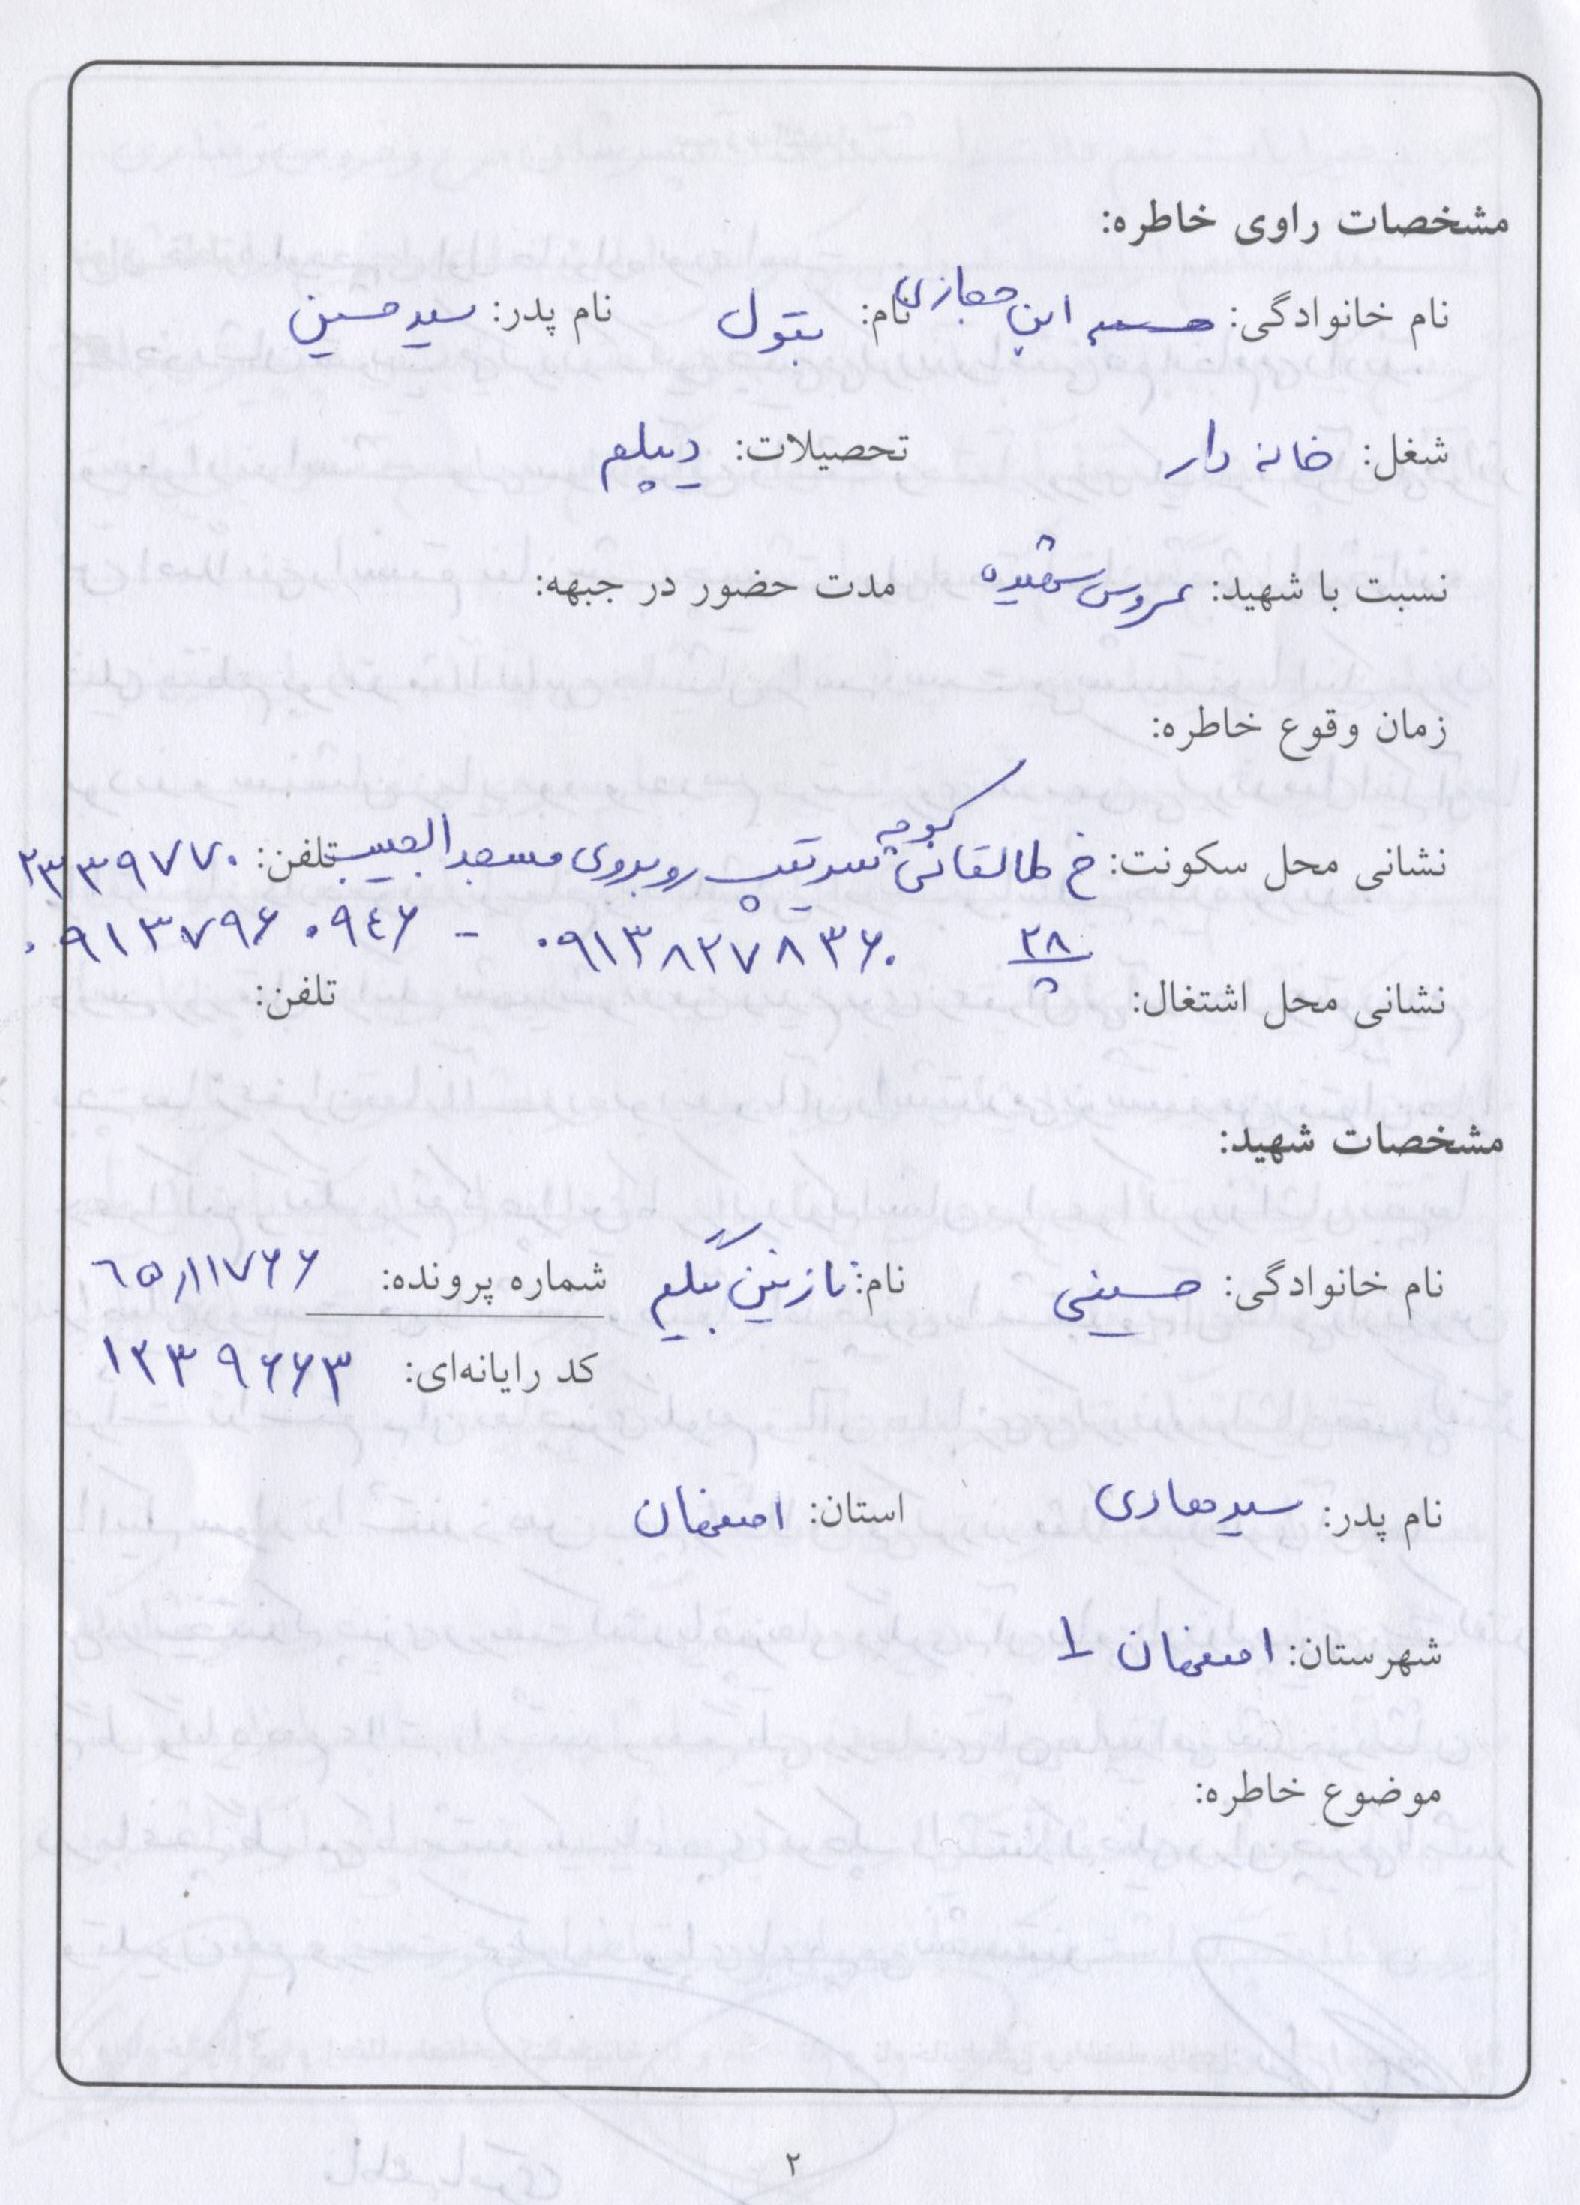 مشخصات راوی خاطره:
نام خانوادگی: ابن حجازی نام: بتول نام پدر: سید حسین
شغل: خانه دار تحصیلات: دیپلم
نسبت با شهید: عروس شهیده مدت حضور در جبهه:
زمان وقوع خاطره:
نشانی محل سکونت: خ طالقانی کوچه سرتیپ روبروی مسجد الحبیب تلفن: ۲۳۳۹۷۷۰
۲۸/۵ ۰۹۱۳۸۲۷۸۳۶۰ - ۰۹۱۳۷۹۶۰۹۴۶
نشانی محل اشتغال: تلفن:
مشخصات شهید:
نام خانوادگی: حسینی نام: نازنین بگیم شماره پرونده: ۶۵۱۱۷۶۶
کد رایانه‌ای: ۱۲۳۹۶۶۳
نام پدر: سید هادی استان: اصفهان
شهرستان: اصفهان ۱
موضوع خاطره:
۲